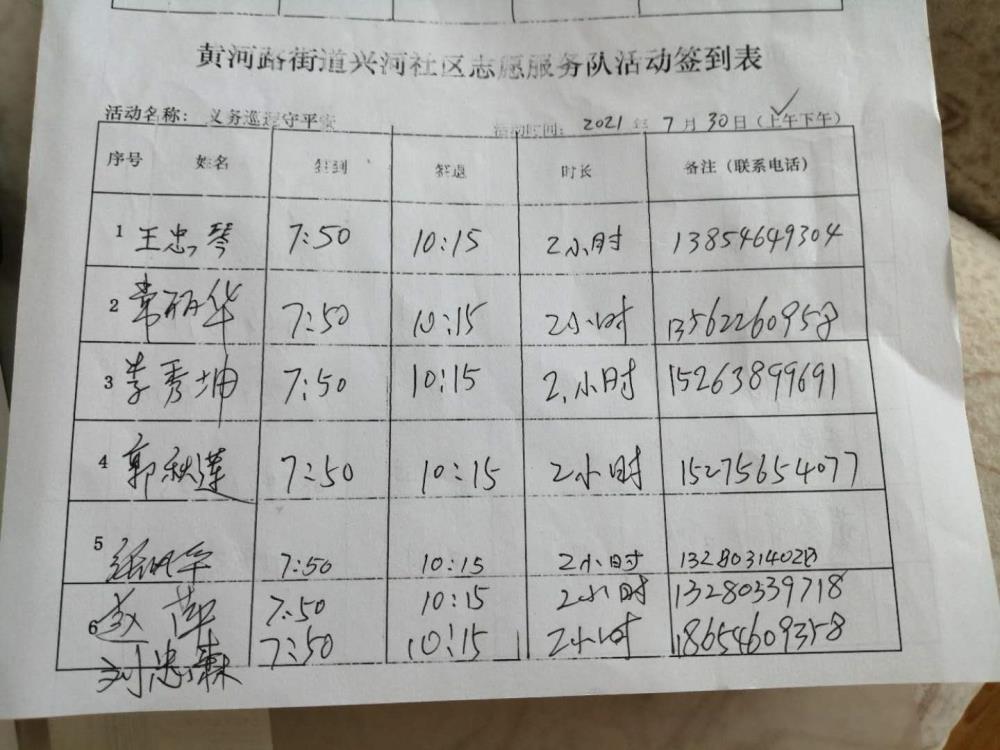 黄河路街道兴河社区志愿服务队活动签到表
活动名称： 义务巡逻守平安 活动时间： 2021 年 7 月 30 日（上午下午）
序号 姓名 签到 签退 时长 备注（联系电话）
1 王忠琴 7:50 10:15 2小时 13854649304
2 常丽华 7:50 10:15 2小时 13562260958
3 李秀坤 7:50 10:15 2小时 15263899691
4 郭秋莲 7:50 10:15 2小时 15275654077
5 7:50 10:15 2小时 13280314028
6 赵萍 7:50 10:15 2小时 13280339718
刘忠森 7:50 10:15 2小时 18654609358